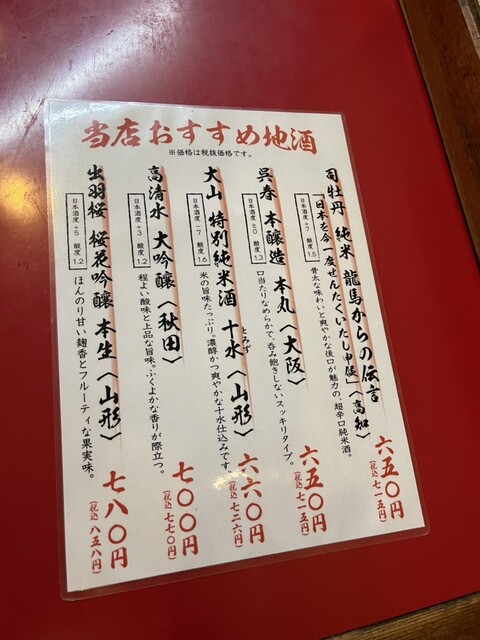 当店おすすめ地酒
※価格は税抜価格です。
司牡丹 純米 龍馬からの伝言
「日本を今一度せんたくいたし申候」〈高知〉
日本酒度 +7 酸度 1.5
骨太な味わいと爽やかな後口が魅力の、超辛口純米酒。
六五〇円
(税込 七一五円)
呉春 本醸造 本丸〈大阪〉
日本酒度 ±0 酸度 1.3
口当たりなめらかで、呑み飽きしないスッキリタイプ。
六五〇円
(税込 七一五円)
大山 特別純米酒 十水〈山形〉
とみず
日本酒度 -7 酸度 1.6
米の旨味たっぷり。濃醇かつ爽やかな十水仕込みです。
六六〇円
(税込 七二六円)
高清水 大吟醸〈秋田〉
日本酒度 +3 酸度 1.2
程よい酸味と上品な旨味。ふくよかな香りが際立つ。
七〇〇円
(税込 七七〇円)
出羽桜 桜花吟醸 本生〈山形〉
日本酒度 +5 酸度 1.2
ほんのり甘い麹香とフルーティな果実味。
七八〇円
(税込 八五八円)